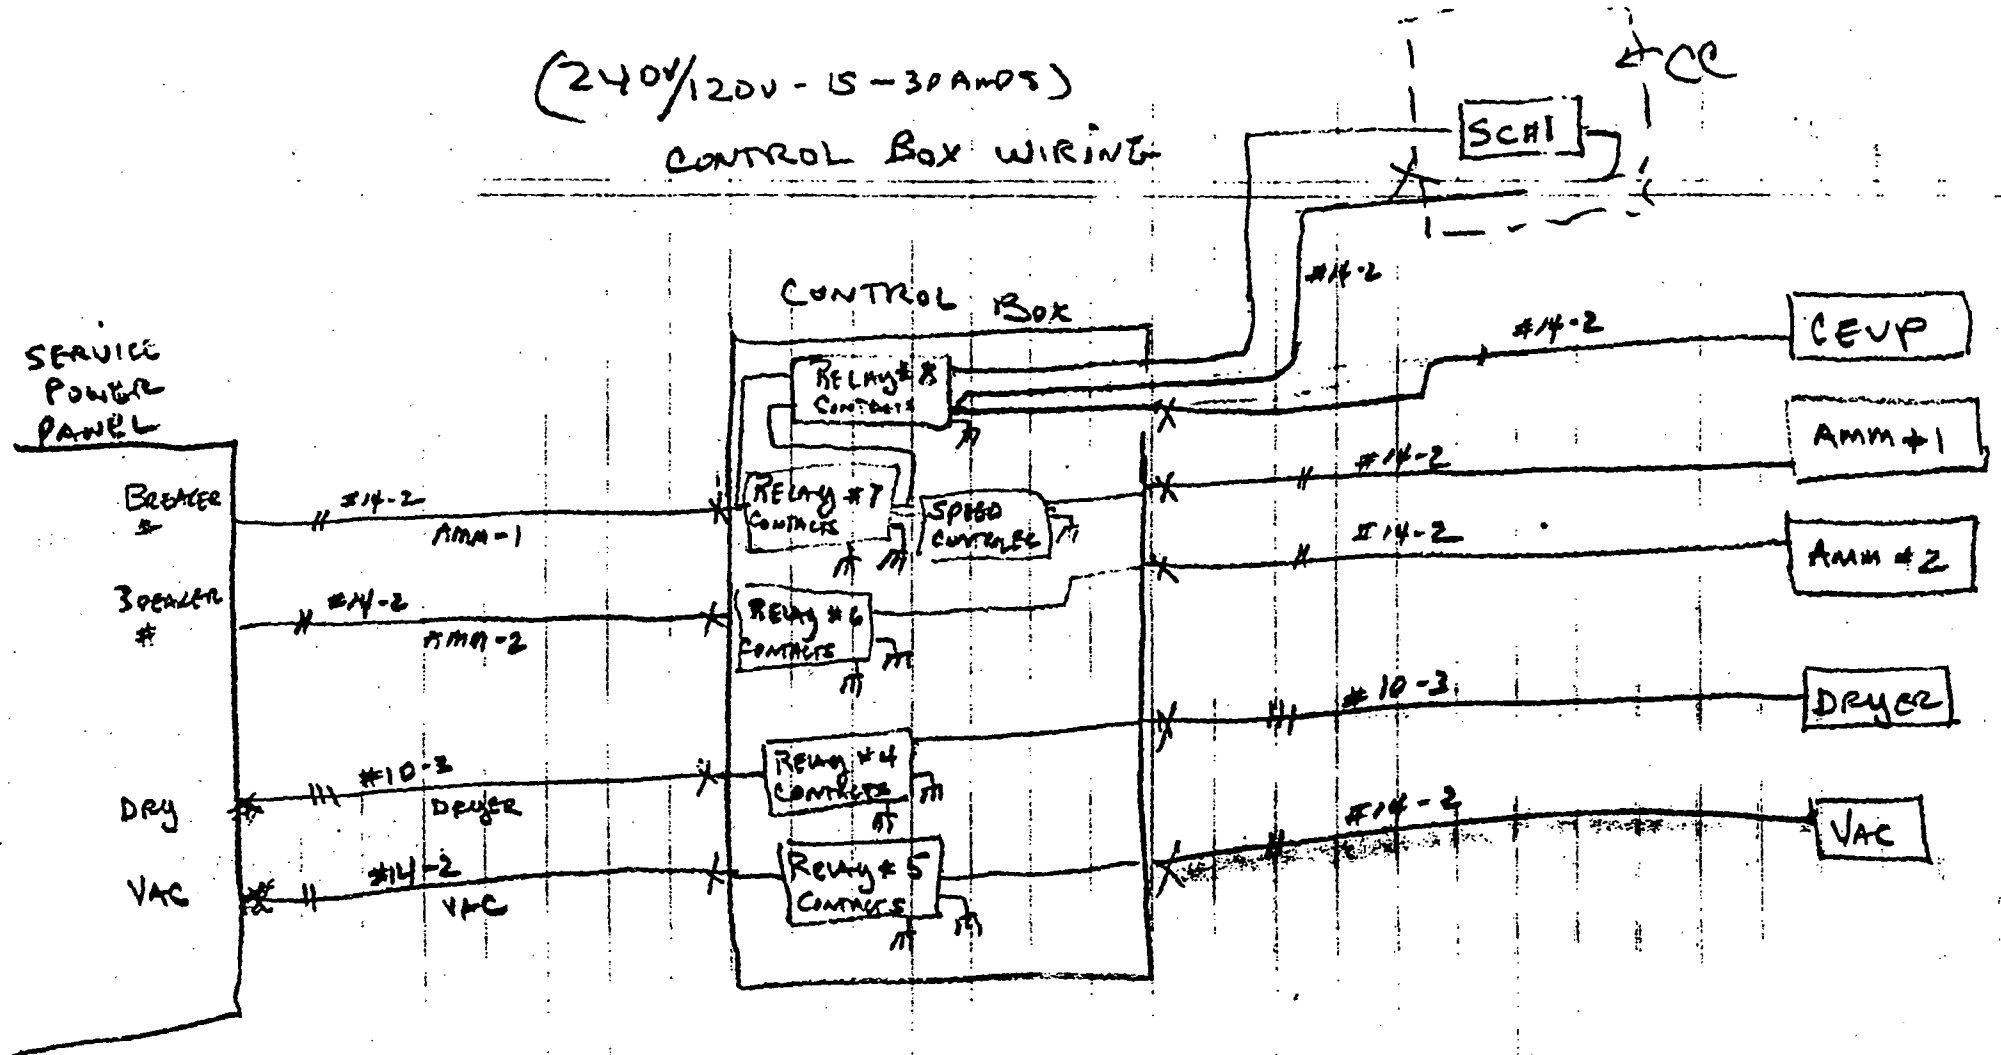 (240V/120V - 15 - 30 AMPS)
CONTROL BOX WIRING
CC
SCH1
#14-2
CONTROL BOX
SERVICE
POWER
PANEL
RELAY # 8
CONTACTS
#14-2
CEVP
#14-2
AMM #1
BREAKER
#
#14-2
AMM-1
RELAY #7
CONTACTS
SPEED
CONTROLER
#14-2
AMM #2
BREAKER
#
#14-2
AMM-2
RELAY #6
CONTACTS
#10-3
DRYER
DRY
#10-3
DRYER
RELAY #4
CONTACTS
#14-2
VAC
VAC
#14-2
VAC
RELAY #5
CONTACTS